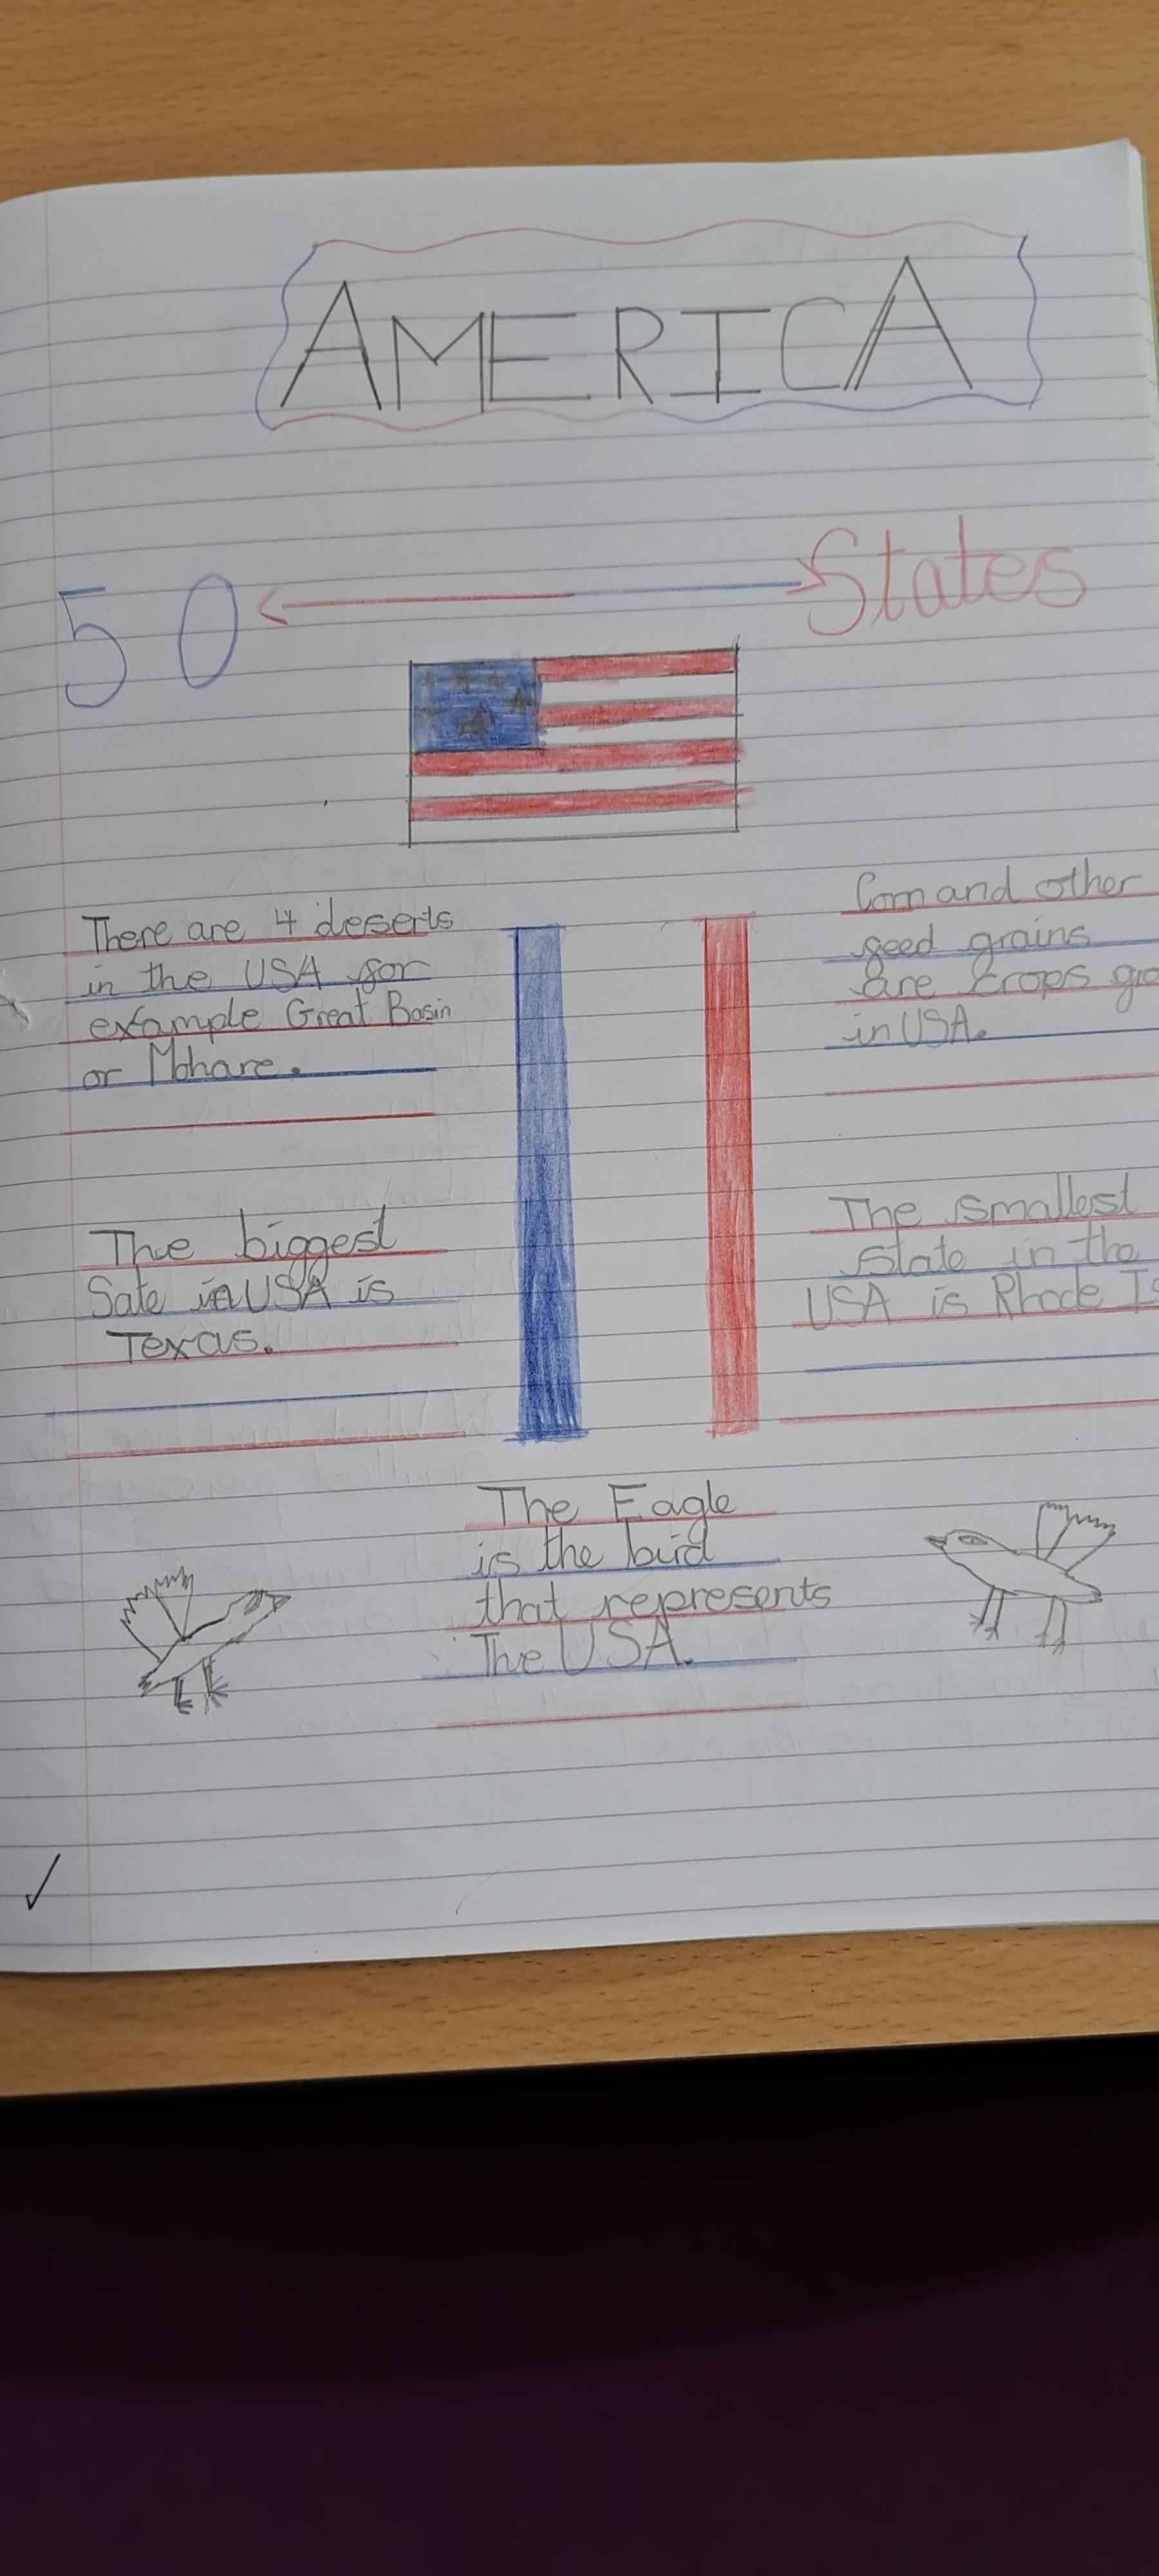 AMERICA
50
States
There are 4 deserts
in the USA for
example Great Basin
or Mohare.
Corn and other
seed grains
are crops
in USA.
The biggest
Sate in USA is
Texas.
The smallest
state in the
USA is Rhode
The Eagle
is the bird
that represents
The USA.